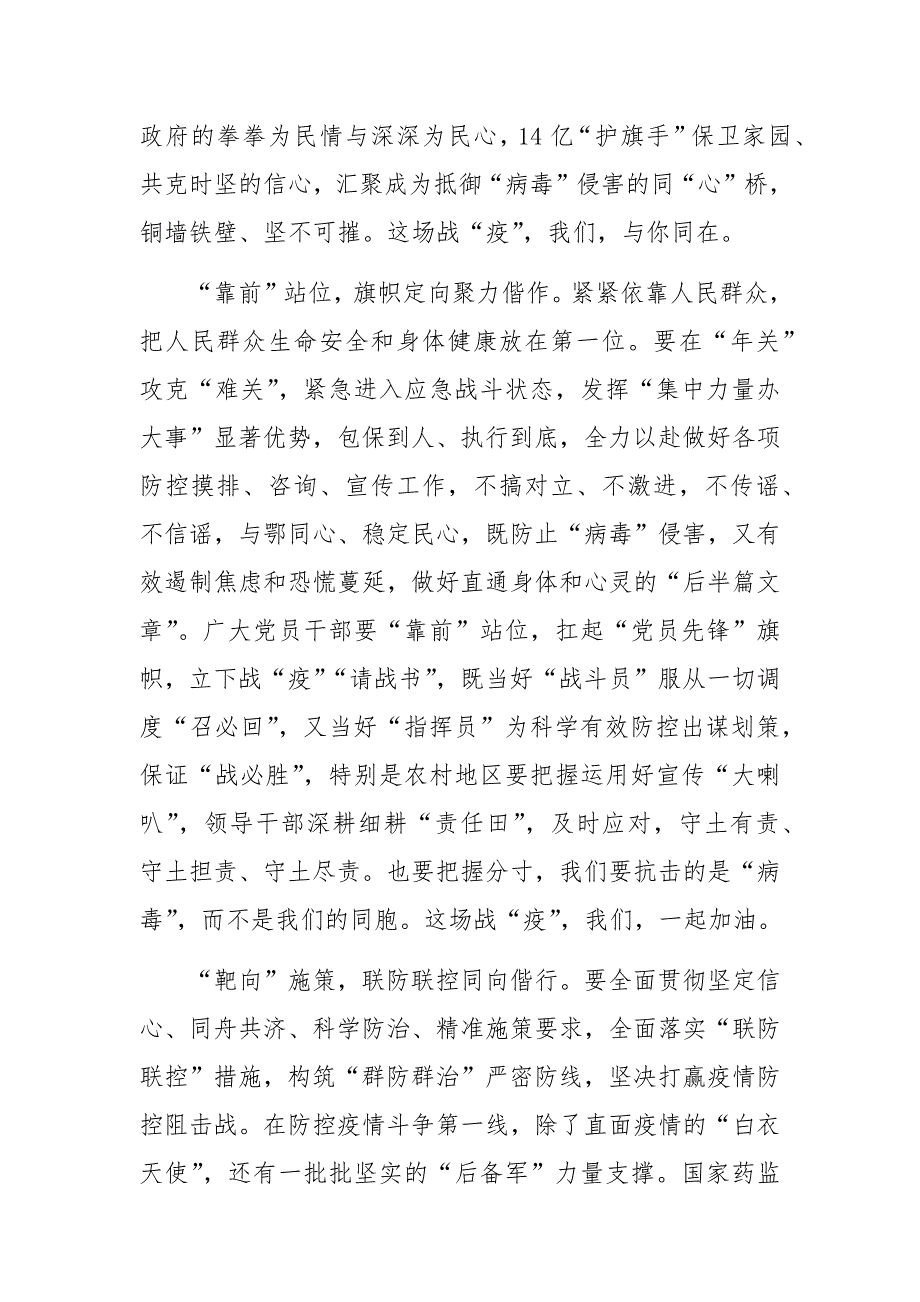 政府的拳拳为民情与深深为民心，14 亿“护旗手”保卫家园、
共克时坚的信心，汇聚成为抵御“病毒”侵害的同“心”桥，
铜墙铁壁、坚不可摧。这场战“疫”，我们，与你同在。
“靠前”站位，旗帜定向聚力偕作。紧紧依靠人民群众，
把人民群众生命安全和身体健康放在第一位。要在“年关”
攻克“难关”，紧急进入应急战斗状态，发挥“集中力量办
大事”显著优势，包保到人、执行到底，全力以赴做好各项
防控摸排、咨询、宣传工作，不搞对立、不激进，不传谣、
不信谣，与鄂同心、稳定民心，既防止“病毒”侵害，又有
效遏制焦虑和恐慌蔓延，做好直通身体和心灵的“后半篇文
章”。广大党员干部要“靠前”站位，扛起“党员先锋”旗
帜，立下战“疫”“请战书”，既当好“战斗员”服从一切调
度“召必回”，又当好“指挥员”为科学有效防控出谋划策，
保证“战必胜”，特别是农村地区要把握运用好宣传“大喇
叭”，领导干部深耕细耕“责任田”，及时应对，守土有责、
守土担责、守土尽责。也要把握分寸，我们要抗击的是“病
毒”，而不是我们的同胞。这场战“疫”，我们，一起加油。
“靶向”施策，联防联控同向偕行。要全面贯彻坚定信
心、同舟共济、科学防治、精准施策要求，全面落实“联防
联控”措施，构筑“群防群治”严密防线，坚决打赢疫情防
控阻击战。在防控疫情斗争第一线，除了直面疫情的“白衣
天使”，还有一批批坚实的“后备军”力量支撑。国家药监